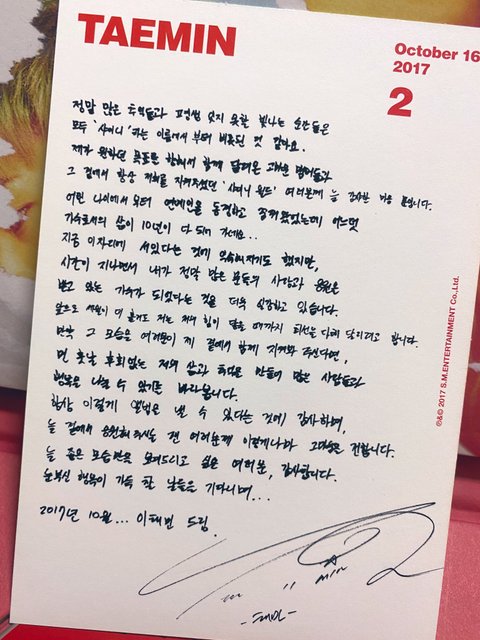 TAEMIN
October 16
2017
2
정말 많은 추억들과 평생 잊지 못할 빛나는 순간들은
모두 '샤이니' 라는 이름에서 부터 비롯된 것 같아요.
제가 원하던 목표를 향해서 함께 달려온 멤버들과
그 곁에서 항상 저희를 지켜주셨던 '샤이니 월드' 여러분께 늘 감사한 마음 뿐입니다.
어린 나이에서부터 연예인을 동경하고 꿈꿔왔었는데 어느덧
가수로서의 삶이 10년이 다 되어 가네요...
지금 이자리에 서있다는 것에 익숙해지기도 했지만,
시간이 지나면서 내가 정말 많은 분들의 사랑과 응원을
받고 있는 가수가 되었다는 것을 더욱 실감하고 있습니다.
앞으로 세월이 더 흘러도 저는 저의 힘이 닿을 때까지 최선을 다해 달리려고 합니다.
만약 그 모습을 여러분이 제 곁에서 함께 지켜봐 주신다면,
먼 훗날 후회없는 저의 삶과 만들어 많은 사람들과
행복을 나눌 수 있기를 바라봅니다.
항상 이렇게 앨범을 낼 수 있다는 것에 감사하며,
늘 곁에서 응원해주시는 팬 여러분께 이렇게나마 고마움을 전합니다.
늘 좋은 모습만을 보여드리고 싶은 여러분, 감사합니다.
눈부신 행복이 가득 한 날들을 기다리며...
2017년 10월... 이태민 드림.
MIN
℗&© 2017 S.M.ENTERTAINMENT Co.,Ltd.